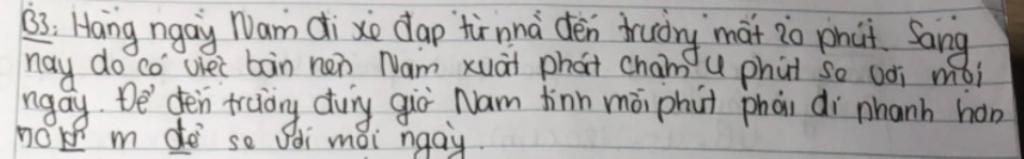 B3. Hàng ngày Nam đi xe đạp từ nhà đến trường mất 20 phút. Sáng
nay do có việc bận nên Nam xuất phát chậm 4 phút so với mỗi
ngày. Để đến trường đúng giờ Nam tính mỗi phút phải đi nhanh hơn
m để so với mỗi ngày.